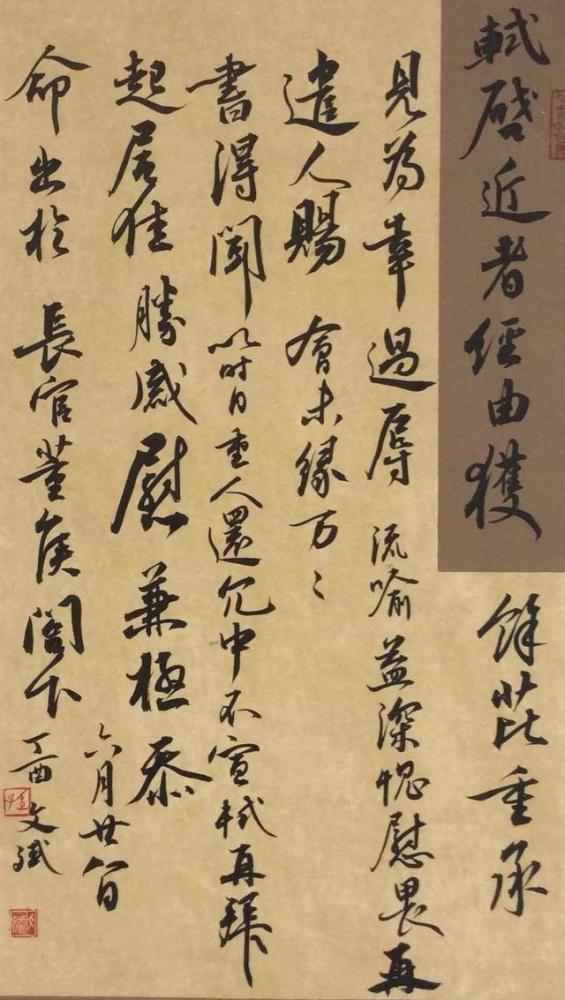 軾啓近者經由獲
餘芘重承
見為幸過辱 流喻益深愧慰畏再
遣人賜 會未緣万々
書得聞 以时自重人還冗中不宣軾再拜
起居佳勝感慰兼極忝
六月廿八日
命出於 長官董侯閣下
丁酉文斌